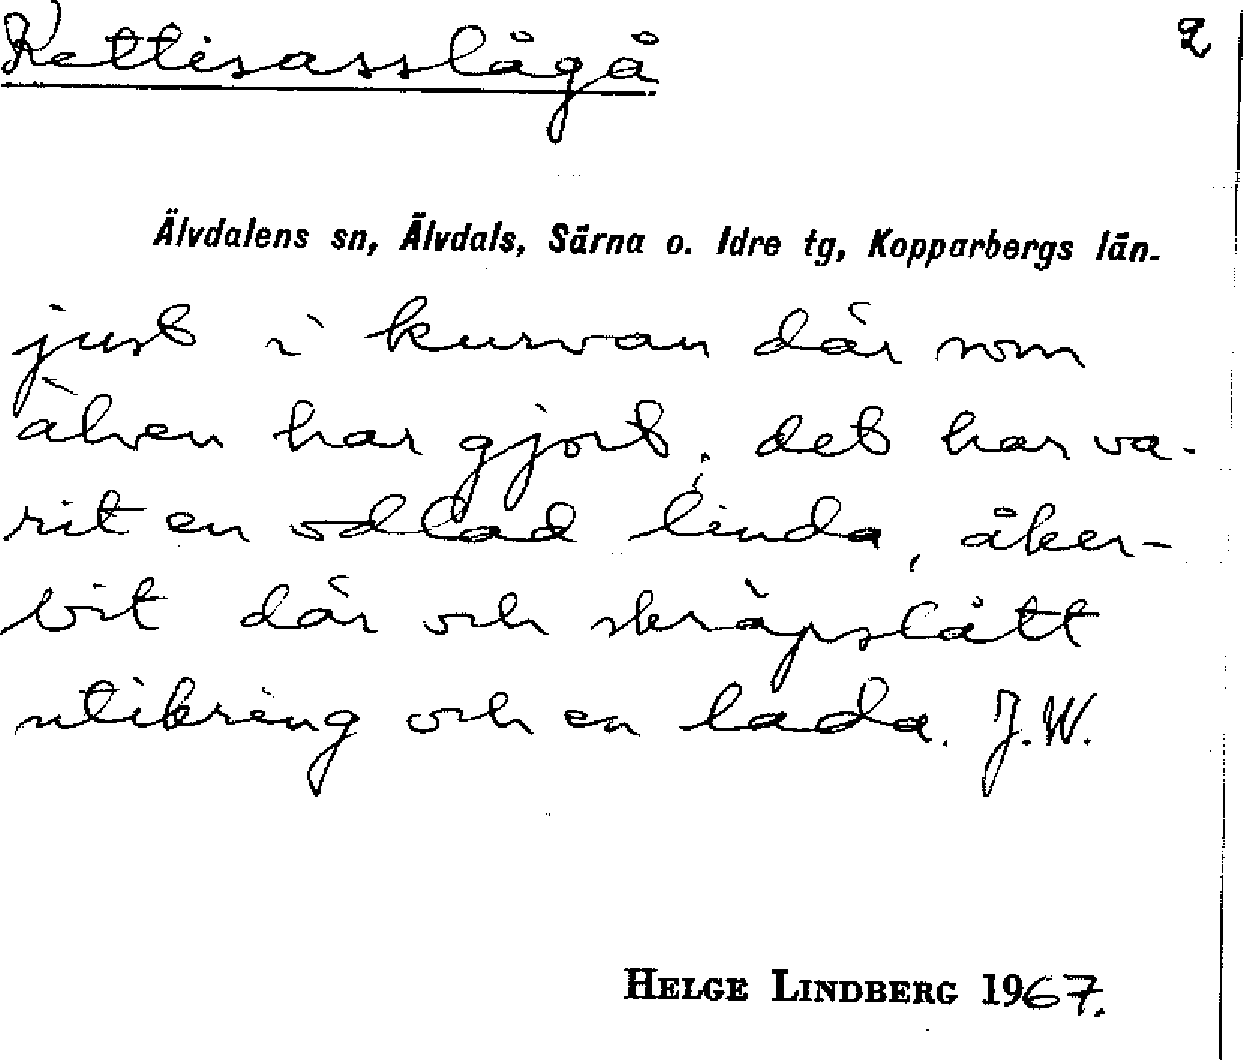 Kettisasslågå 2
Älvdalens sn, Älvdals, Särna o. Idre tg, Kopparbergs län.
just i kurvan där som
älven har gjort; det har va-
rit en odlad linda, åker-
bit där och skräpslått
utikring och en lada. J.W.
HELGE LINDBERG 1967.